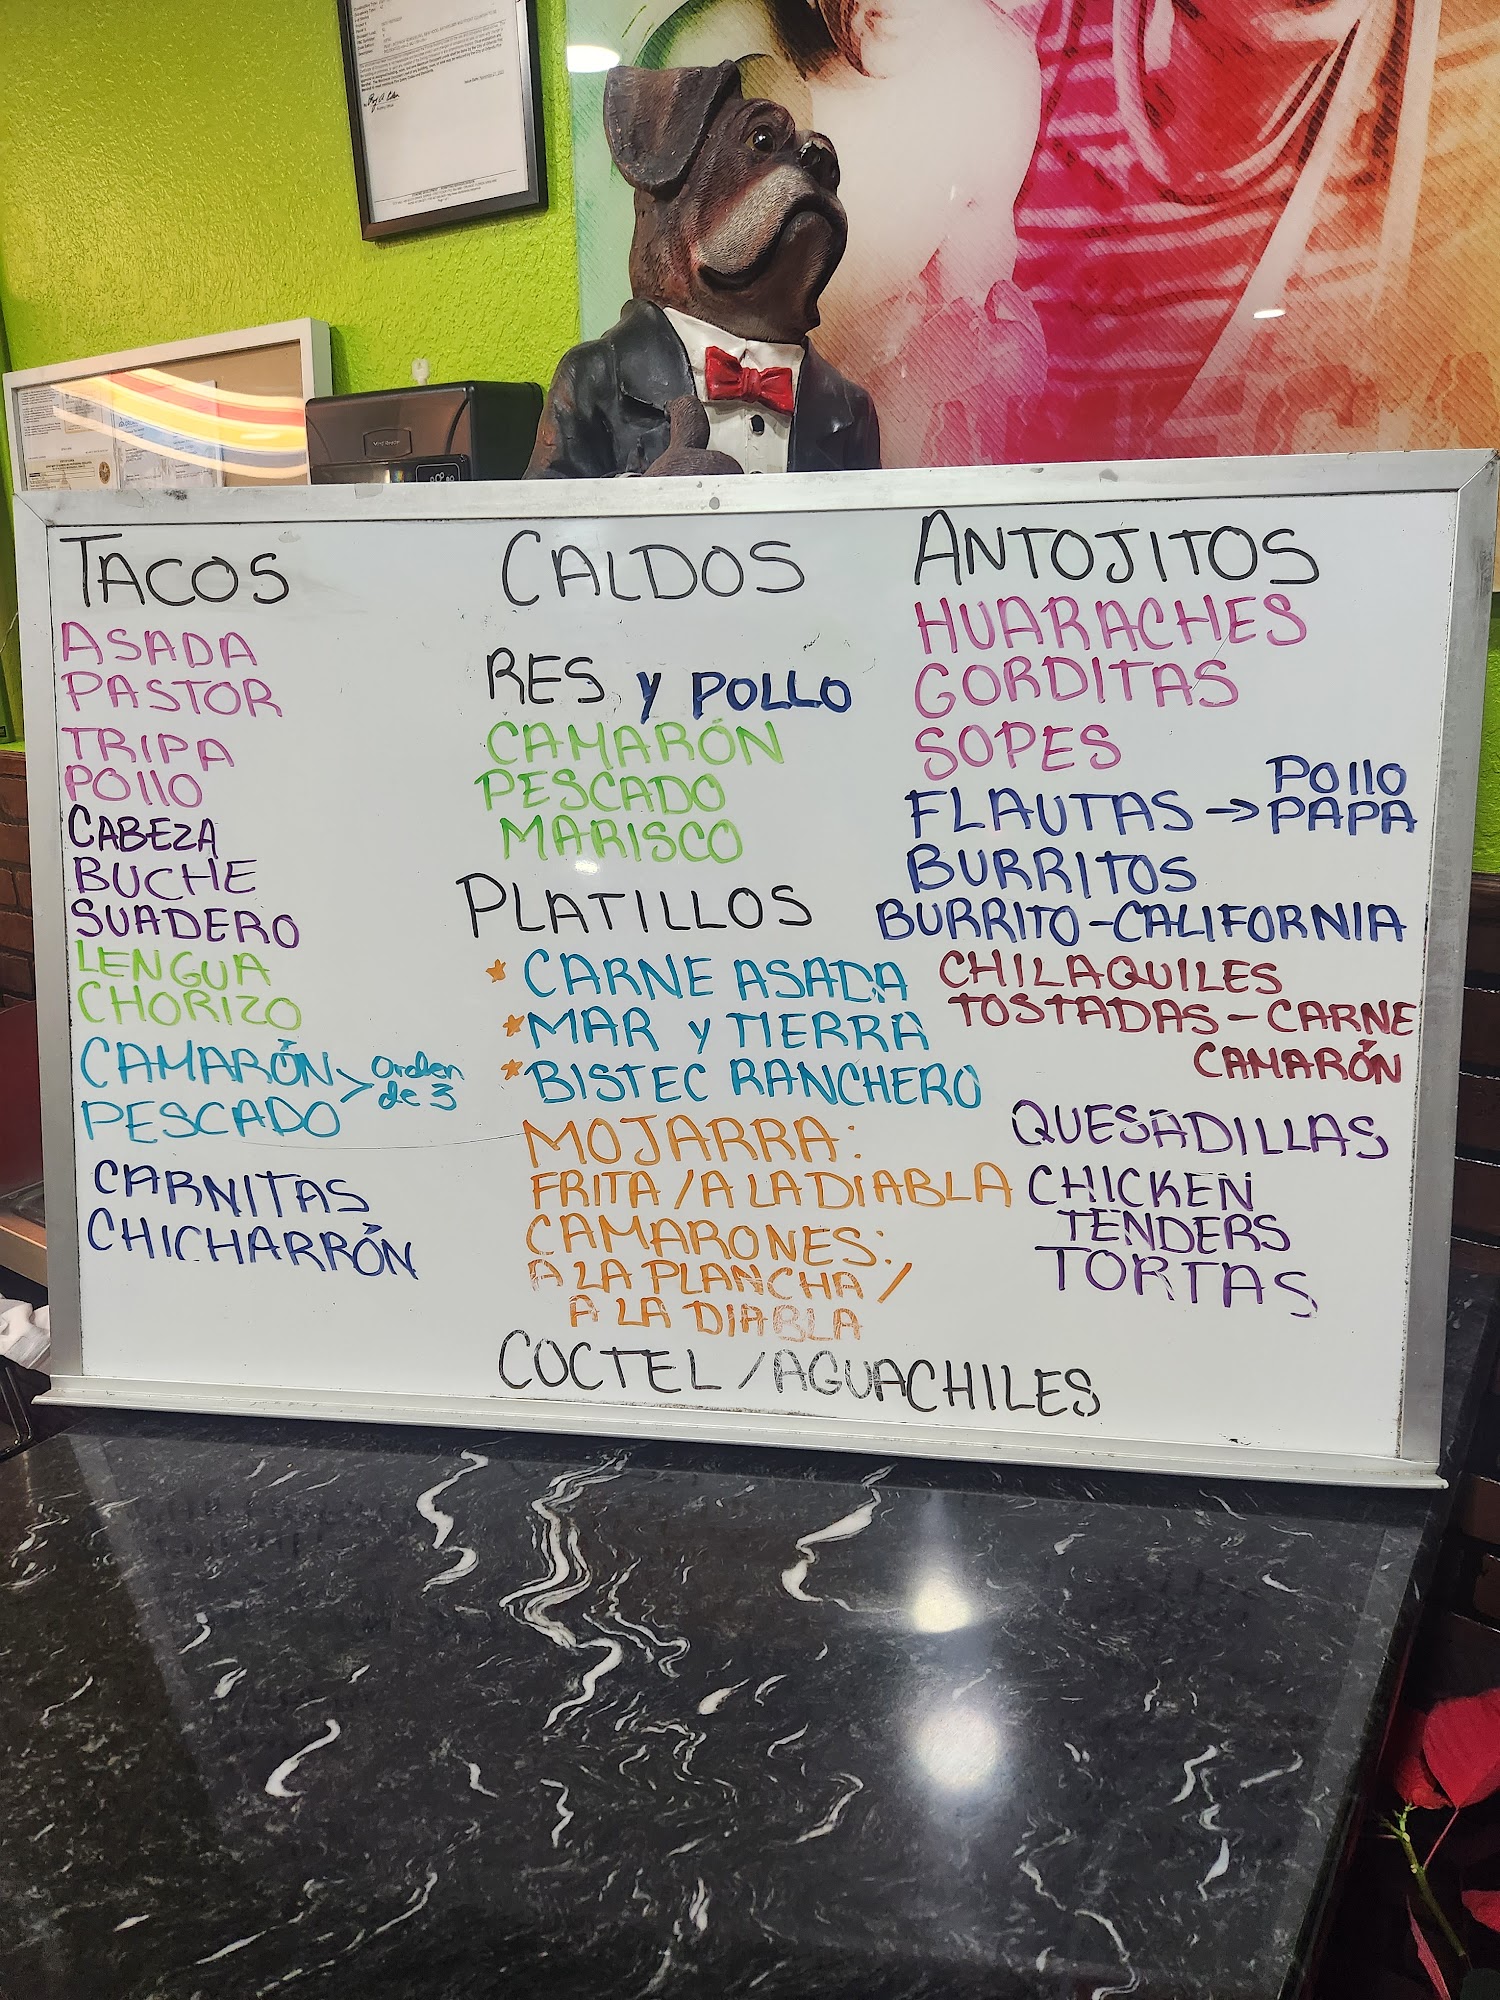 TACOS
ASADA
PASTOR
TRIPA
POllO
CABEZA
BUCHE
SUADERO
LENGUA
CHORIZO
CAMARÓN > Orden
de 3
PESCADO
CARNITAS
CHICHARRÓN
CALDOS
RES y POLLO
CAMARÓN
PESCADO
MARISCO
PLATILLOS
* CARNE ASADA
* MAR y TIERRA
* BISTEC RANCHERO
MOJARRA:
FRITA / A LA DIABLA
CAMARONES:
A LA PLANCHA /
A LA DIABLA
COCTEL / AGUACHILES
ANTOJITOS
HUARACHES
GORDITAS
SOPES
POllO
FLAUTAS → PAPA
BURRITOS
BURRITO - CALIFORNIA
CHILAQUILES
TOSTADAS - CARNE
CAMARÓN
QUESADILLAS
CHICKEN
TENDERS
TORTAS